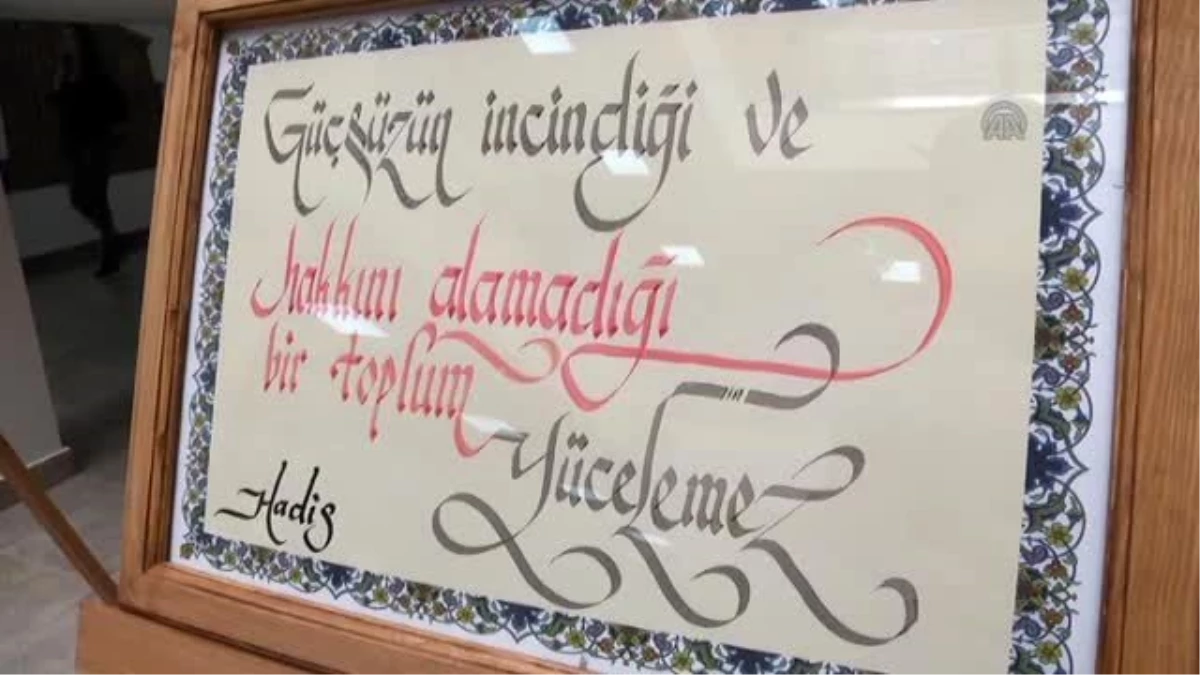 Güçsüzün incindiği ve
hakkını alamadığı
bir toplum
Yücelemez
Hadis
AA